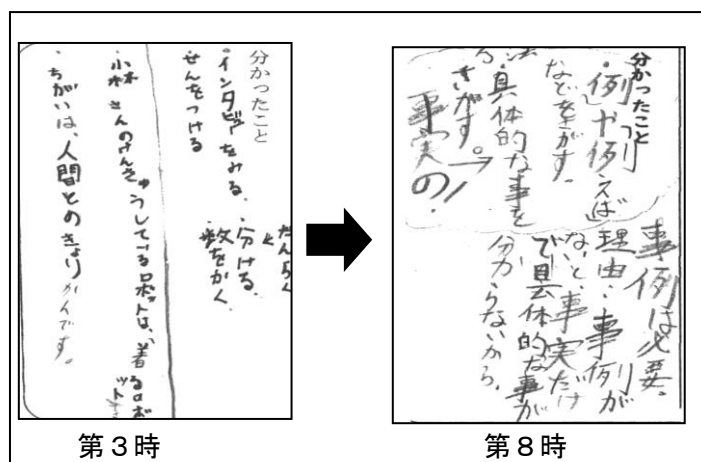 分かったこと
・インタビューをみる、
せんをつける
だんらく
と
・分ける。
・数をかく。
・小林さんのけんきゅうしているロボットは、「着るロボット
・ちがいは、人間とのきょりかんです。
第3時
分かったこと
・「例」や「例えば」
などをさがす。
・具体的な事を
さがす。→
事実の.
事例は必要。
理由:事例が
ないと、事実だけ
で具体的な事が
分からないから。
第8時